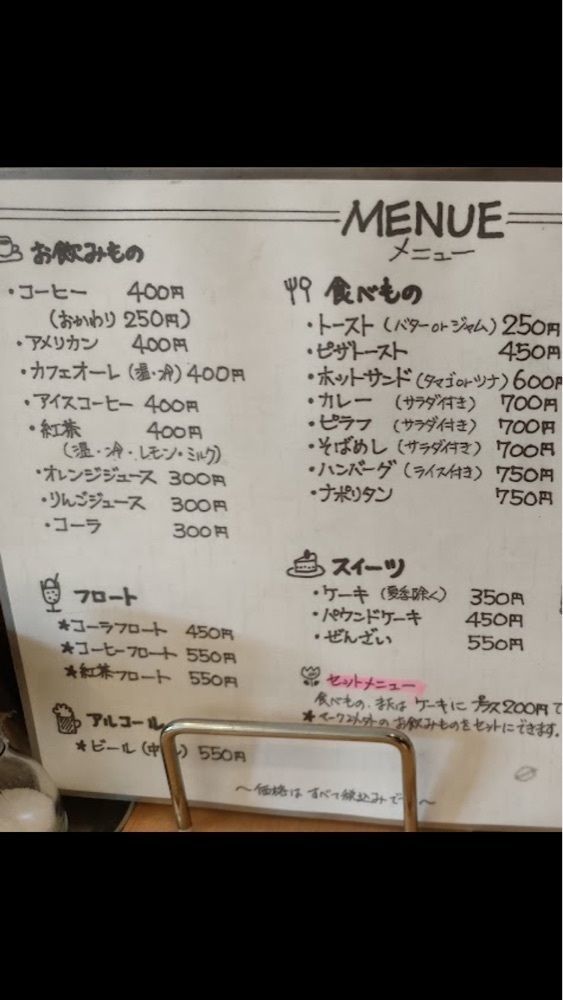 MENUE
メニュー
お飲みもの
・コーヒー 400円
(おかわり 250円)
・アメリカン 400円
・カフェオーレ(温・冷) 400円
・アイスコーヒー 400円
・紅茶 400円
(温・冷・レモン・ミルク)
・オレンジジュース 300円
・りんごジュース 300円
・コーラ 300円
フロート
★コーラフロート 450円
★コーヒーフロート 550円
★紅茶フロート 550円
アルコール
★ビール(中 550円
食べもの
・トースト(バターorジャム) 250円
・ピザトースト 450円
・ホットサンド(タマゴorツナ) 600円
・カレー (サラダ付き) 700円
・ピラフ (サラダ付き) 700円
・そばめし(サラダ付き) 700円
・ハンバーグ(ライス付き) 750円
・ナポリタン 750円
スイーツ
・ケーキ(夏季除く) 350円
・パウンドケーキ 450円
・ぜんざい 550円
セットメニュー
食べもの、または ケーキに プラス200円で
★マーク以外の お飲みものをセットにできます。
〜価格は すべて税込みで 〜